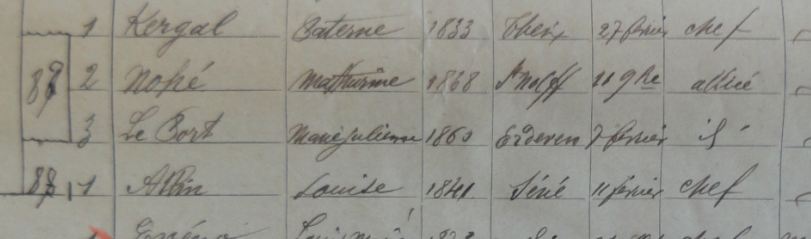 1 Kergal Paterne 1833 Theix 27 février chef
87 2 Nopé Mathurine 1838 St Nolff 11 9bre alliée
3 Le Port Marie Julienne 1860 Erdeven 7 février id
88 1 Allin Louise 1841 Séné 11 février chef